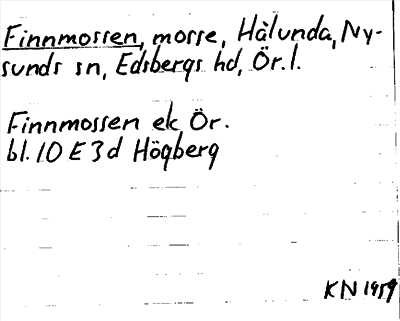 Finnmossen, mosse, Hålunda, Ny-
sunds sn, Edsbergs hd, Ör.l.
Finnmossen ek Ör.
bl. 10 E 3 d Högberg
KN 1959